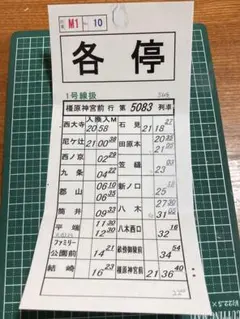 M1 No 10
各停
1号線扱
橿原神宮前 行 第 5083 列車
入換入M
西大寺 20 58
石見 21 18 27
尼ケ辻 21 00 38
田原本 20
西ノ京 02 29
笠縫 23
九条 04 22
新ノ口 25
郡山 06 10 06 35
八木 27 31 00
筒井 09 33
八木西口 32 18
平端 11 30 12 30
畝傍御陵前 34 54
ファミリー公園前 14 21
結崎 16 23
橿原神宮前 21 36 40